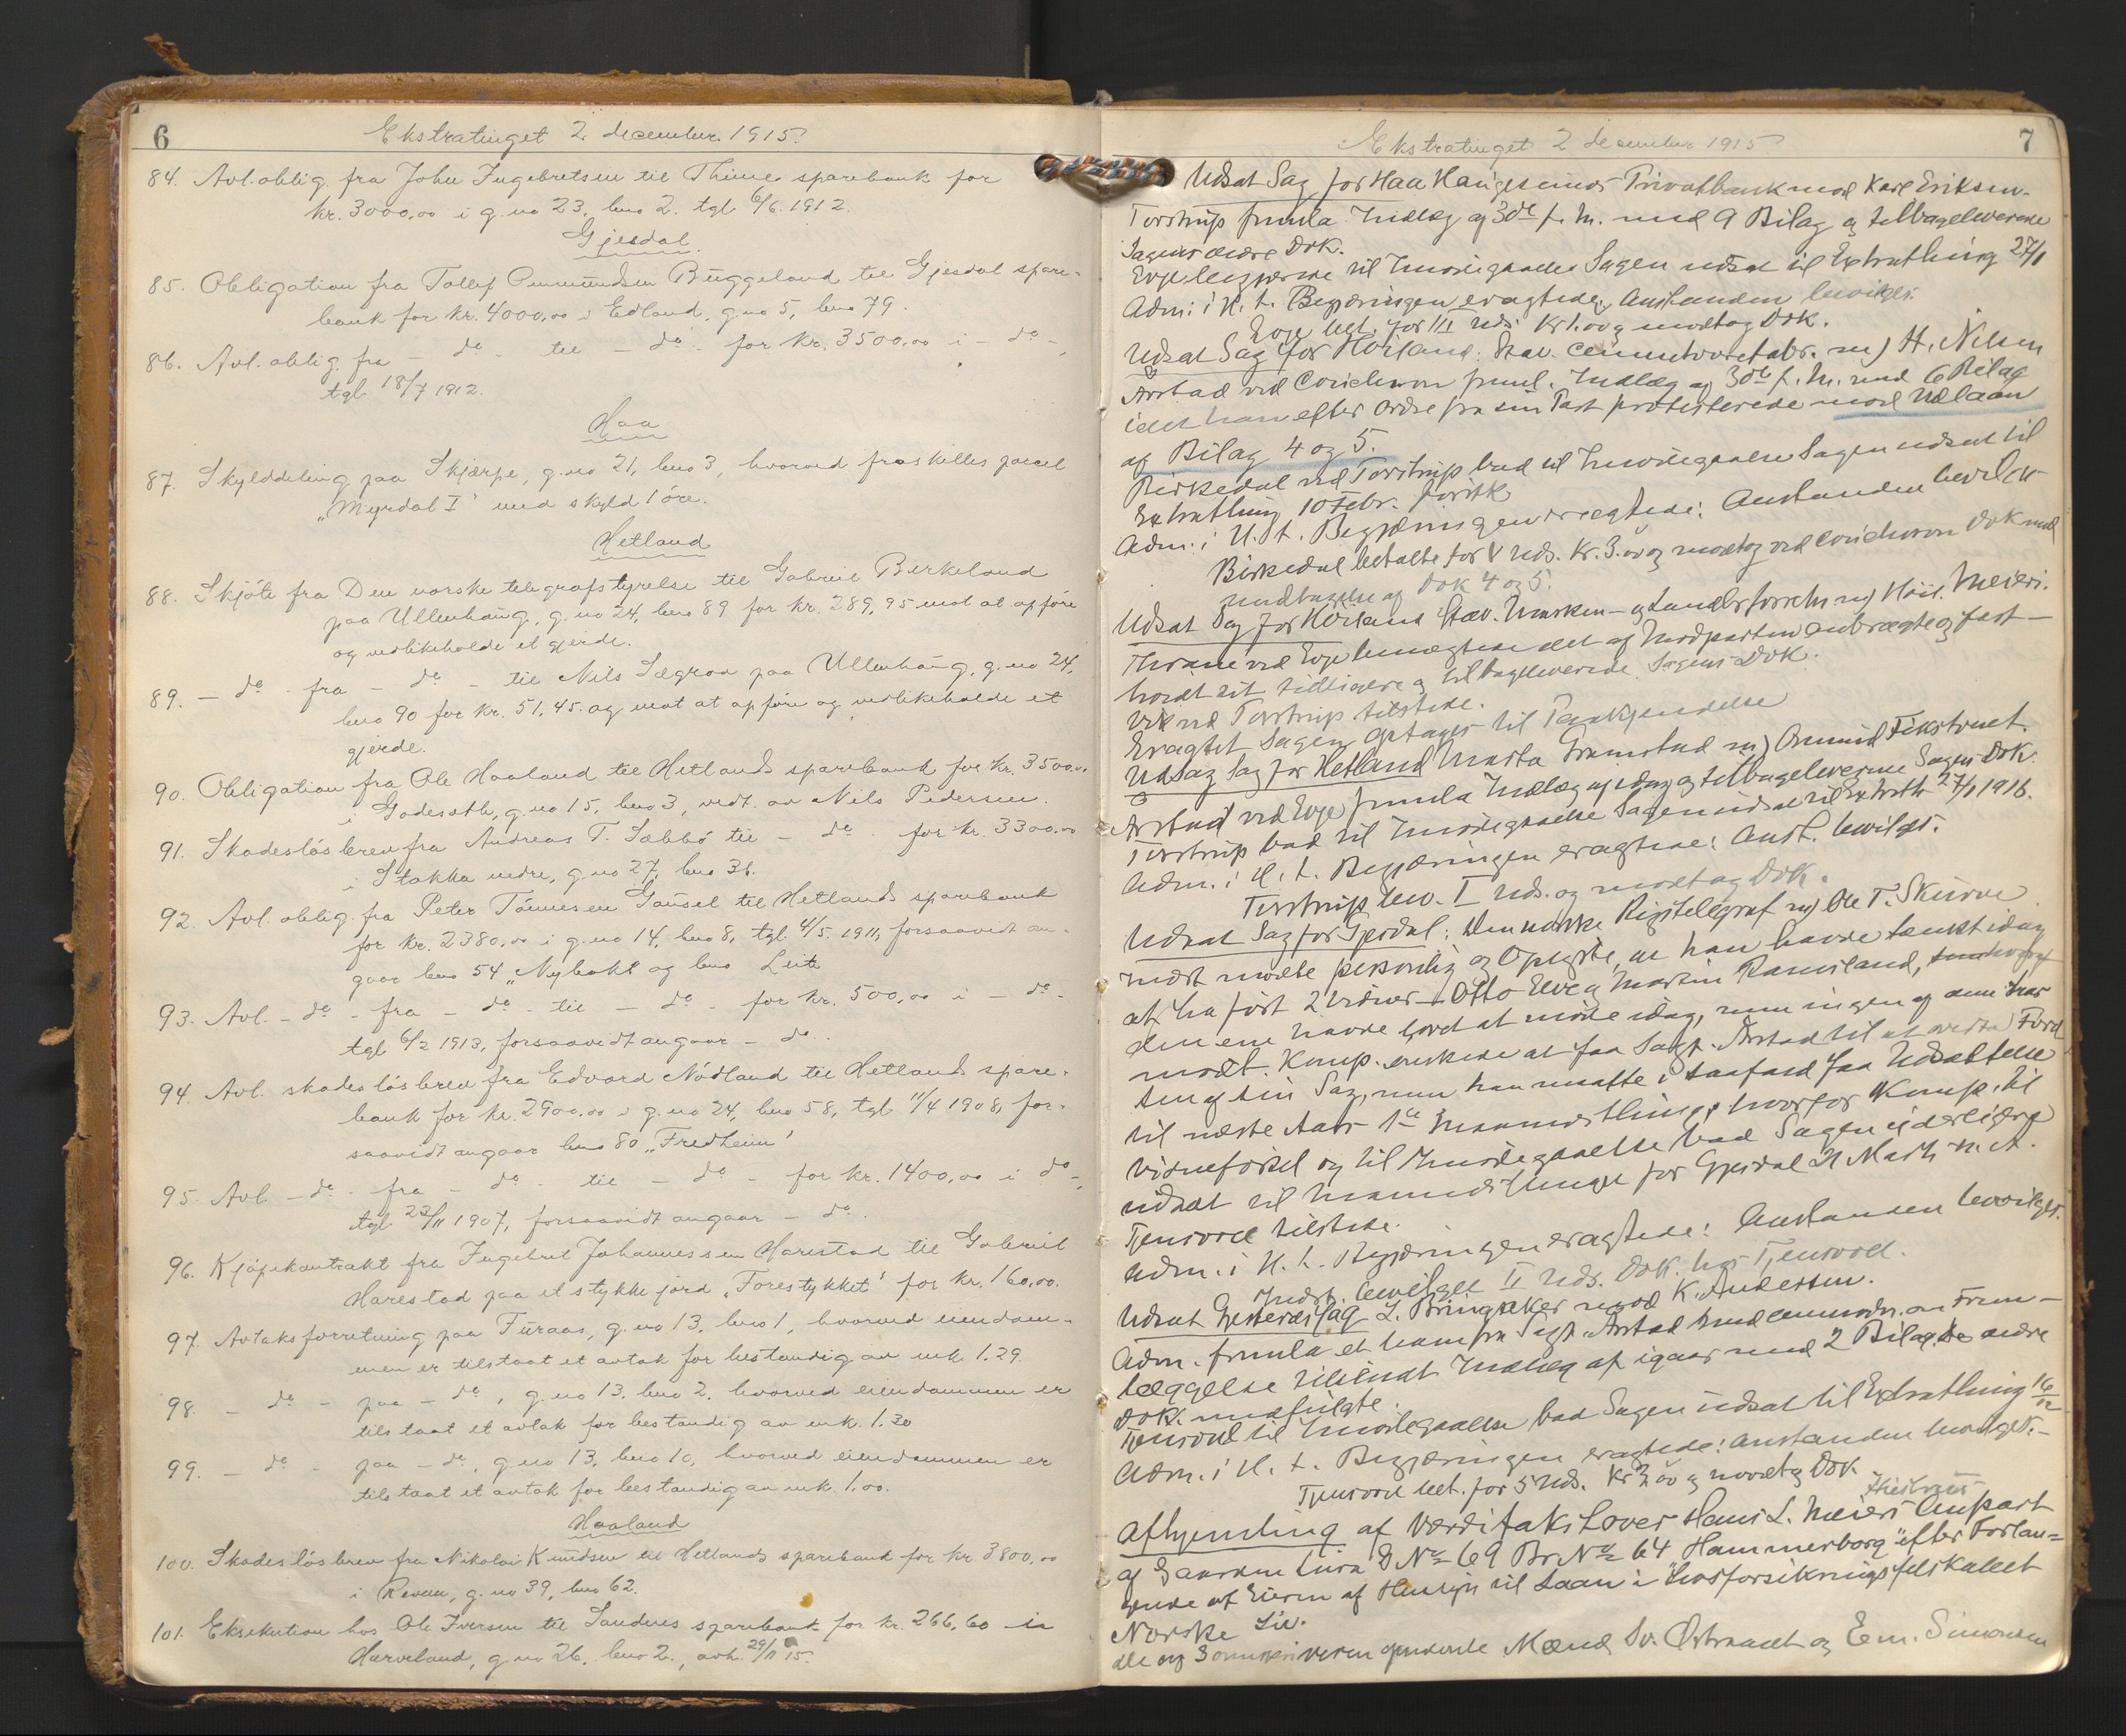 6
Ekstratinget 2 december 1915.
84. Avl. oblig. fra John Ingebretsen til Thime sparebank for
kr. 3000,00 i g.no 23, bno 2. tgl 6/6. 1912.
Gjesdal.
85. Obligation fra Tollef Gunmundsen Byggeland til Gjesdal spare-
bank for kr. 4000,00 i Edland, g.no 5, bno 79.
86. Avl. oblig. fra - do - til - do - for kr. 3500,00 i - do -,
tgl 18/7 1912.
Haa
87. Skylddeling paa Skjærpe, g.no 21, bno 3, hvorved fraskilles parcel
"Myrdal I" med skyld 1 öre.
Hetland
88. Skjöte fra Den norske telegrafstyrelse til Gabriel Berkeland
paa Ullenhaug, g.no 24, bno 89 for kr. 289,95 mot at opföre
og vedlikeholde et gjerde.
89. - do - fra - do - til Nils Sægrov paa Ullenhaug, g.no 24,
bno 90 for kr. 51,45 og mot at opföre og vedlikeholde et
gjerde.
90. Obligation fra Ole Haaland til Hetlands sparebank for kr. 3500,00
i Godeseth, g.no 15, bno 3, vedt. av Nils Pedersen.
91. Skadeslösbrev fra Andreas T. Sæbbö til - do - for kr. 3300,00
i Stokka nedre, g.no 27, bno 31.
92. Avl. oblig. fra Peter Tönnesen Gausel til Hetlands sparebank
for kr. 2380,00 i g.no 14, bno 8, tgl. 4/5. 1911, forsaavidt an-
gaar bno 54 "Nybakk" og bno Leite
93. Avl. - do - fra - do - til - do - for kr. 500,00 i - do -
tgl 6/2 1913, forsaavidt angaar - do -.
94. Avl. skadeslösbrev fra Edvard Nödland til Hetlands spare-
bank for kr. 2900,00 i g.no 24, bno 58, tgl 11/4 1908, for-
saavidt angaar bno 80 "Fredheim"
95. Avl. - do - fra - do - til - do - for kr. 1400,00 i do -,
tgl 23/11 1907, forsaavidt angaar - do -.
96. Kjöpekontrakt fra Ingebret Johannessen Harestad til Gabriel
Harestad paa et stykke jord "Forestykket" for kr. 160,00.
97. Avtaksforretning paa Furaas, g.no 13, bno 1, hvorved eiendom-
men er tilstaat et avtak for bestandig av mk. 1.29.
98. - do - paa - do -, g.no 13, bno 2, hvorved eiendommen er
tilstaat et avtak for bestandig av mk. 1.30
99. - do - paa - do -, g.no 13, bno 10, hvorved eiendommen er
tilstaat et avtak for bestandig av mk. 1.00.
Haaland
100. Skadeslösbrev fra Nikolai Knudsen til Hetlands sparebank for kr. 3800,00
i Reveim, g.no 39, bno 62.
101. Eksekution hos Ole Iversen til Sandnes sparebank for kr. 266,60 i
Harveland, g.no 26, bno 2, avh. 29/11 15.
7
Ekstratinget 2 december 1915
Udsat Sag for Haa Haugesunds Privatbank mod Karl Eriksen.
Torstrup fremla Indlæg af 30de f. M. med 9 Bilag og tilbageleverede
Sagens andre Dok.
Evje begjærede til Imødegaaelse Sagen udsat til Extrathing 27/1
Adm. i H. t. Begjæringen eragtede: Anstanden bevilges.
Evje bet. for III Uds. Kr 1.00 og modtog Dok.
Udsat Sag for Höiland: Stav. Cementvarefabr. m) H. Nilsen
Årstad ved Corichwon freml. Indlæg af 30de f. M. med 6 Bilag
idet han efter Ordre fra sin Part protesterede mod Udlaan
af Bilag 4 og 5.
Birkedal ved Torstrup bad til Imødegaaelse Sagen udsat til
Extrathing 10 Febr.
Adm. i H. t. Begjæringen eragtede: Anstanden bevilges
Birkedal betalte for V Uds. Kr. 3.00 og modtog ved Corichwon Dok med
undtagelse af Dok 4 og 5.
Udsat Sag for Höiland Stav. Smørken- og Landbr.forretn. m) Höil. Meieri.
Thrane ved Evje benægtede det af Modparten anbragte og fast-
holdt sit tidligere og tilbageleverede Sagens Dok.
Vik ved Torstrup tilstede.
Eragtet Sagen optages til Paakjendelse
Udsat Sag for Hetland Marta Gramstad m) Omund Fikstveit.
Årstad ved Evje fremla Indlæg af idag og tilbageleverede Sagens Dok.
Torstrup bad til Imødegaaelse Sagen udsat til Extrath 27/1 1916.
Adm. i H. t. Begjæringen eragtede: Anst. bevilges.
Torstrup bev. I Uds. og modtog Dok.
Udsat Sag for Gjesdal: Den norske Rigstelegraf m) Ole T. Skurve
Indst mødte personlig og Oplyste, at han havde tænkt idag
at ha ført 2 Vidner - Otto Elve og Martin Ramsland,
den ene havde lovet at møde idag, men ingen af dem har
mødt. Komp. ønskede at faa Sagf. Årstad til at
sin Sag, men han maatte i saafald faa Udsættelse
til næste Aars 1ste Maanedsthing, hvorfor Komp. til
Vidneførsel og til Imødegaaelse bad Sagen yderligere
udsat til Maanedsthinget for Gjesdal 21 Marts n. A.
Tjensvold tilstede.
Adm. i H. t. Begjæringen eragtede: Anstanden bevilges.
Indst. bevilget II Uds. Dok. hos Tjensvold.
Udsat Gjesteretssag L. Bringaker mod K. Andersen.
Adm. fremla et ham fra Sagf. Årstad med anmodn. om Frem-
læggelse tilsendt Indlæg af igaar med 2 Bilag. De andre
Dok. medfulgte.
Tjensvold til Imødegaaelse bad Sagen udsat til Extrathing 16/12
Adm. i H. t. Begjæringen eragtede: Anstanden bevilget.-
Tjensvold bet. for 5 Uds. Kr 3,00 og modtog Dok.
Afhjemling af Værditakst over Hans L. Meieris Anpart
af Gaarden Lura G No 69 Br No 64 "Hammerborg" efter Forlan-
gende af Eieren af Hensyn til Laan i Livsforsikringsselskabet
Norske Liv.
Mænd Sv. Østraadt og Em. Simonsen